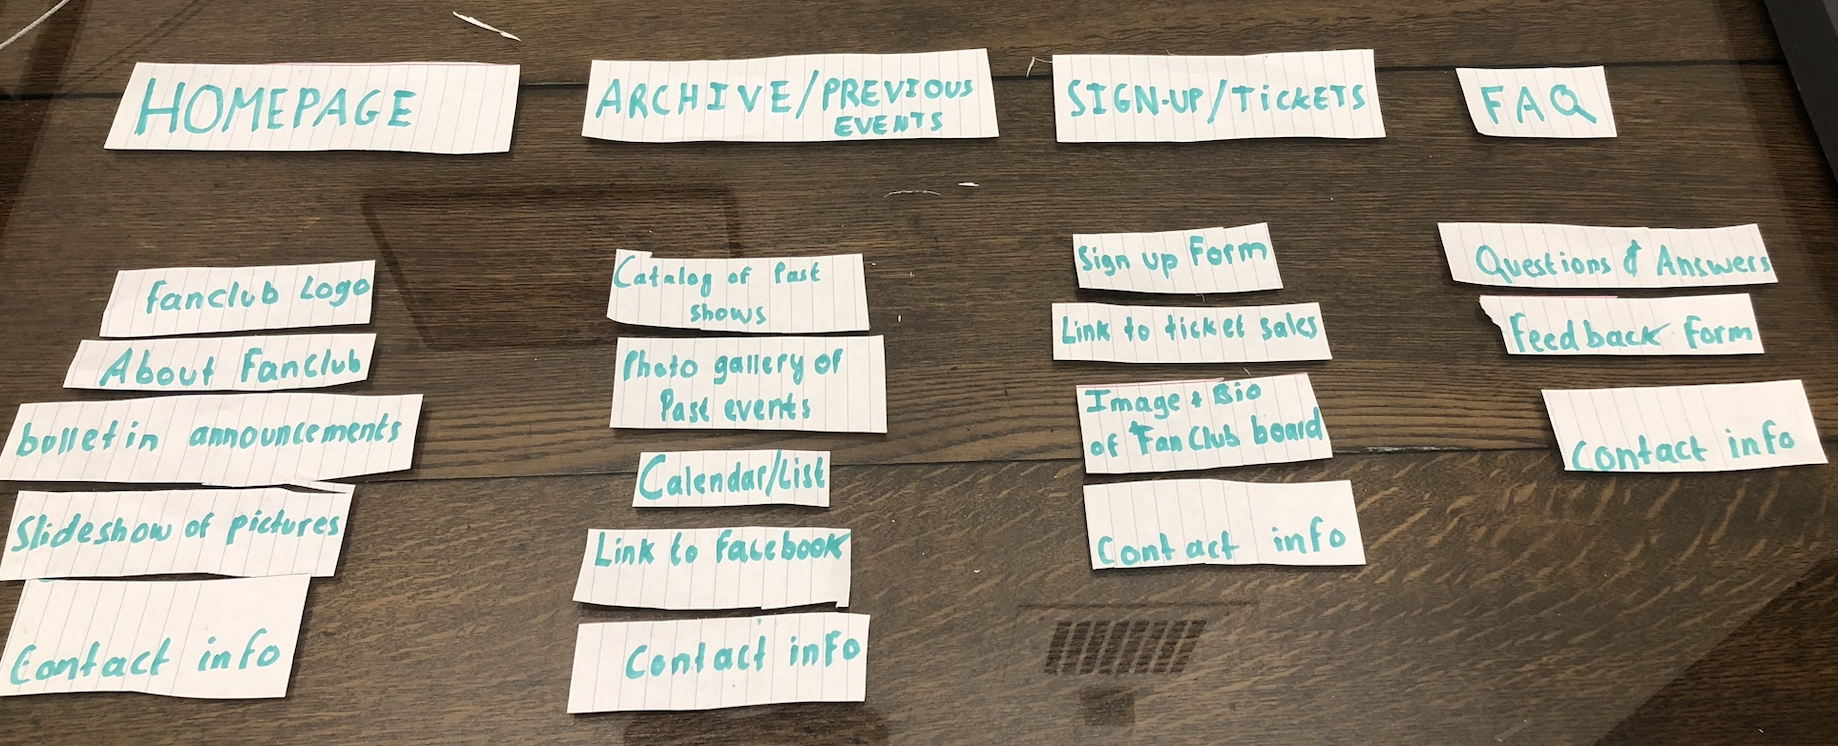 HOMEPAGE
Fanclub Logo
About Fanclub
bulletin announcements
Slideshow of pictures
Contact info
ARCHIVE/PREVIOUS
EVENTS
Catalog of Past
shows
Photo gallery of
Past events
Calendar/List
Link to facebook
Contact info
SIGN-UP/TICKETS
Sign up Form
Link to ticket sales
Image + Bio
of Fan Club board
Contact info
FAQ
Questions & Answers
Feedback form
Contact info